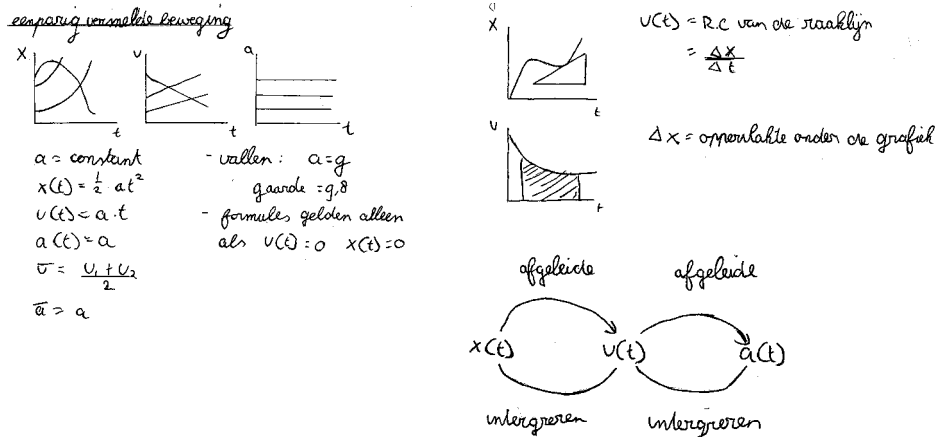 eenparig versnelde beweging
x
t
v
t
a
t
a = constant
x(t) = ½ at²
v(t) = a · t
a(t) = a
v̅ = (v₁ + v₂) / 2
a̅ = a
- vallen : a = g
g aarde = 9,8
- formules gelden alleen
als v(t) = 0 x(t) = 0
x
t
v(t) = R.C van de raaklijn
= Δx / Δt
v
t
Δx = oppervlakte onder de grafiek
afgeleide afgeleide
x(t) v(t) a(t)
intergreren intergreren